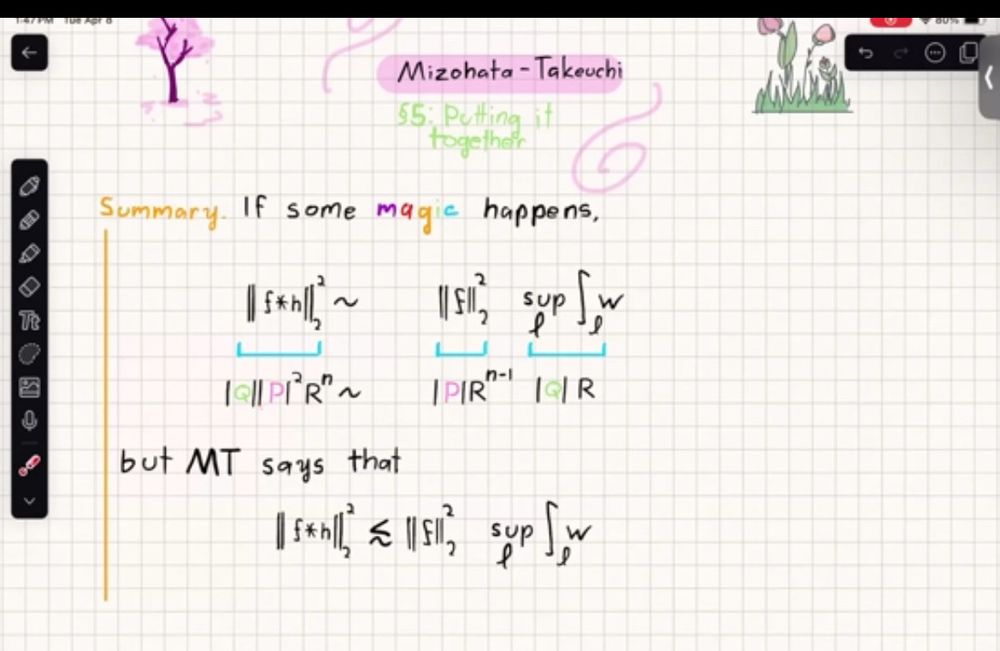 1:47 PM Tue Apr 8
80%
Mizohata-Takeuchi
§5: Putting it
together
Summary. If some magic happens,
‖f*h‖₂² ~ ‖f‖₂² sup_ℓ ∫_ℓ w
|Q||P|²Rⁿ ~ |P|Rⁿ⁻¹ |Q|R
but MT says that
‖f*h‖₂² ≲ ‖f‖₂² sup_ℓ ∫_ℓ w